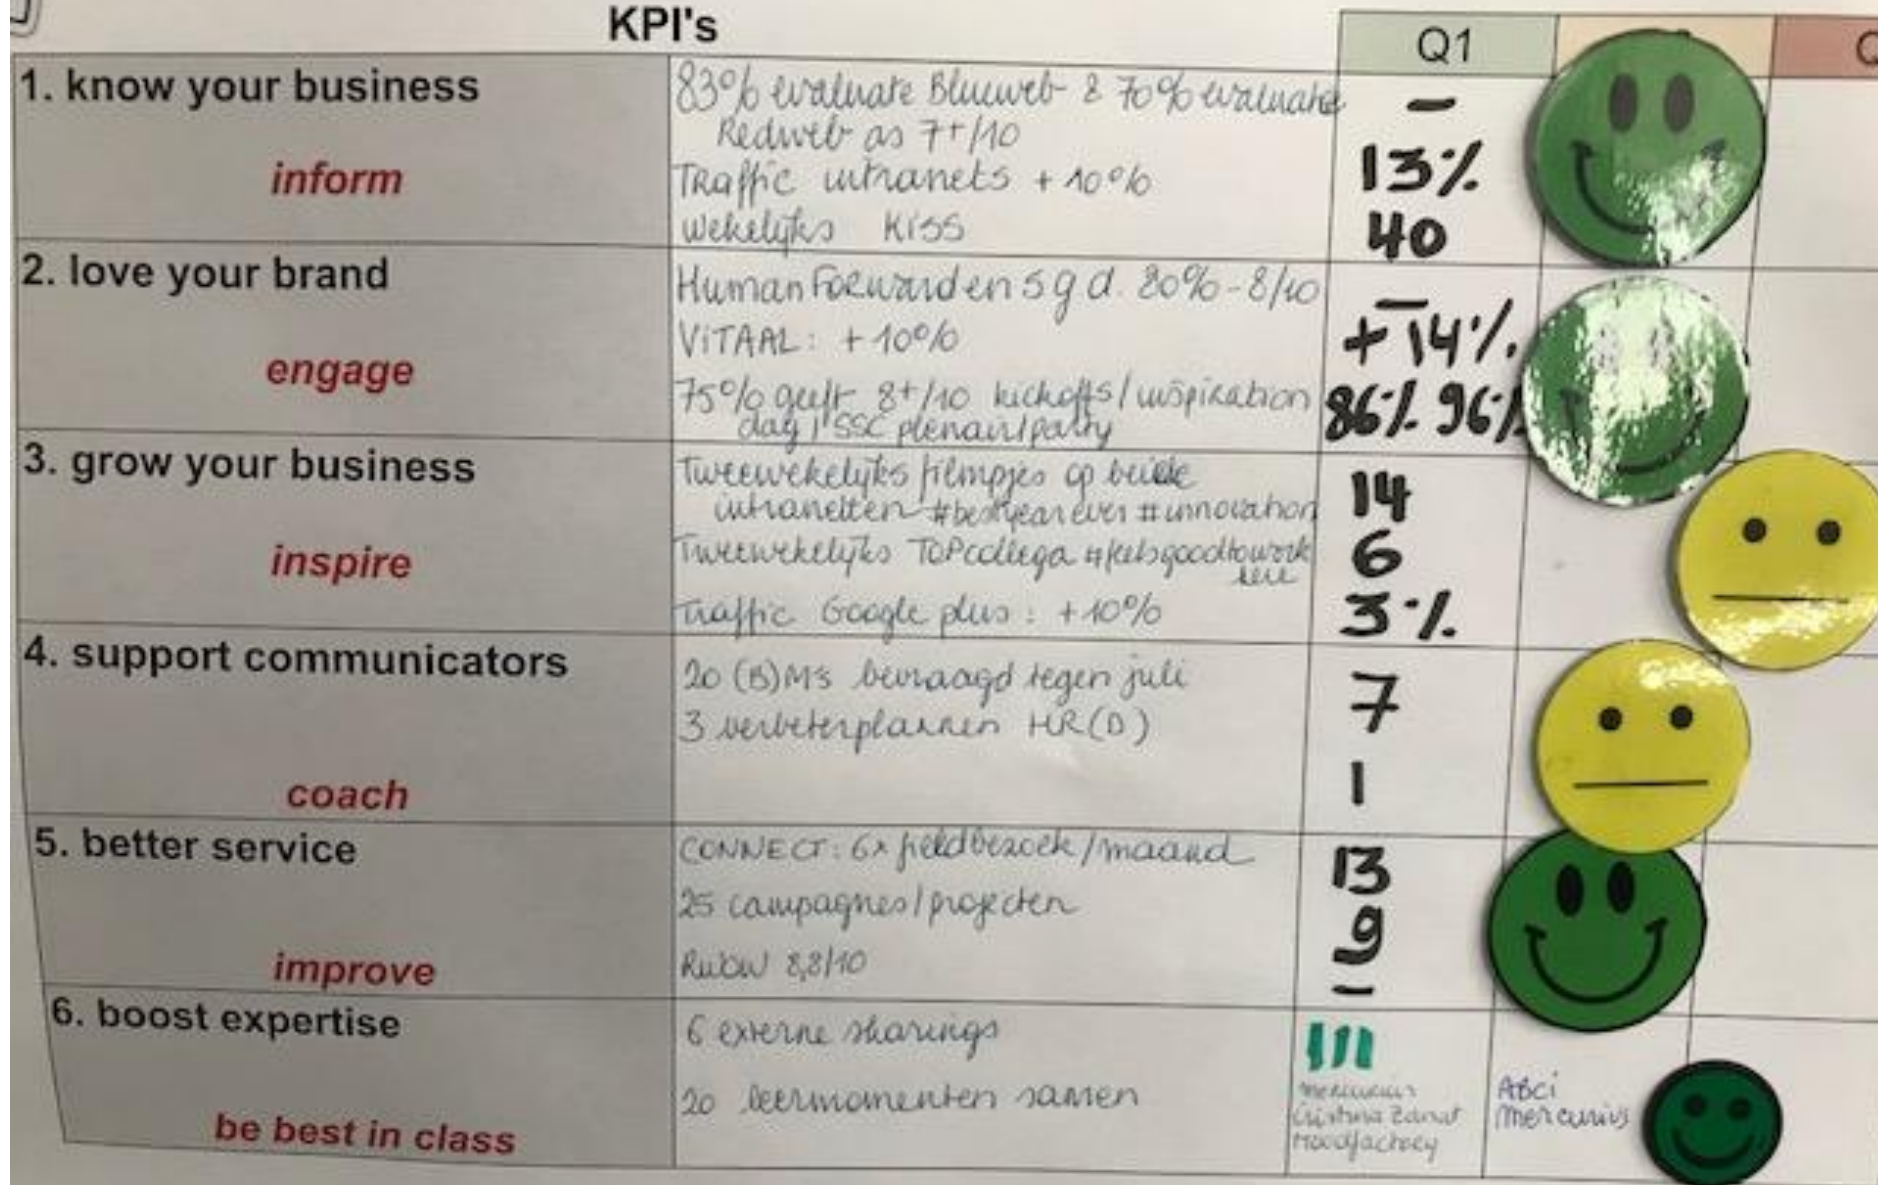 KPI's
Q1
Q
1. know your business
inform
83% evaluate Blueweb & 70% evaluate
Redweb as 7+/10
Traffic intranets + 10%
wekelijks KISS
—
13%
40
2. love your brand
engage
Human Forward en 5 g d. 80% - 8/10
VITAAL: + 10%
75% geeft 8+/10 kickoffs/inspiration
dag / SSC plenair/party
—
+ 14%
86% 96%
3. grow your business
inspire
Tweewekelijks filmpjes op beide
intranetten #bestyearever #innovation
Tweewekelijks TOPcollega #feelsgoodtowork
Traffic Google plus: +10%
14
6
3%
4. support communicators
coach
20 (B)M's bevraagd tegen juli
3 verbeterplannen HR(D)
7
1
5. better service
improve
CONNECT: 6x fieldbezoek/maand
25 campagnes/projecten
RWOW 8,8/10
13
9
—
6. boost expertise
be best in class
6 externe sharings
20 leermomenten samen
III
mercurius
Cristina Zanat
ABCi
Mercurius